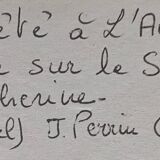 été à L'A
sur le S
therine-
J. Perrin